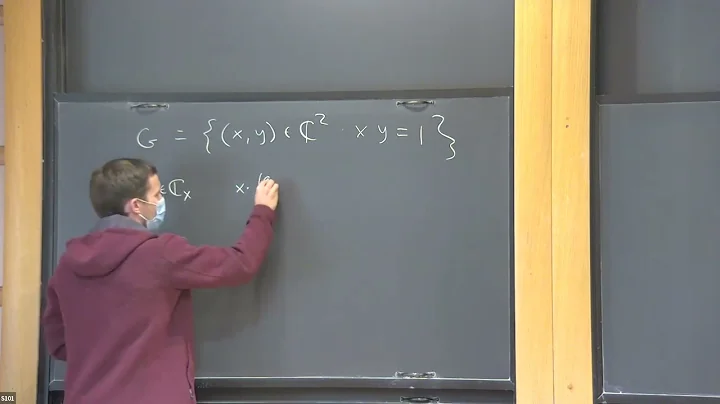 G = {(x, y) ∈ ℂ² · x y = 1}
∈ ℂₓ x·
S101